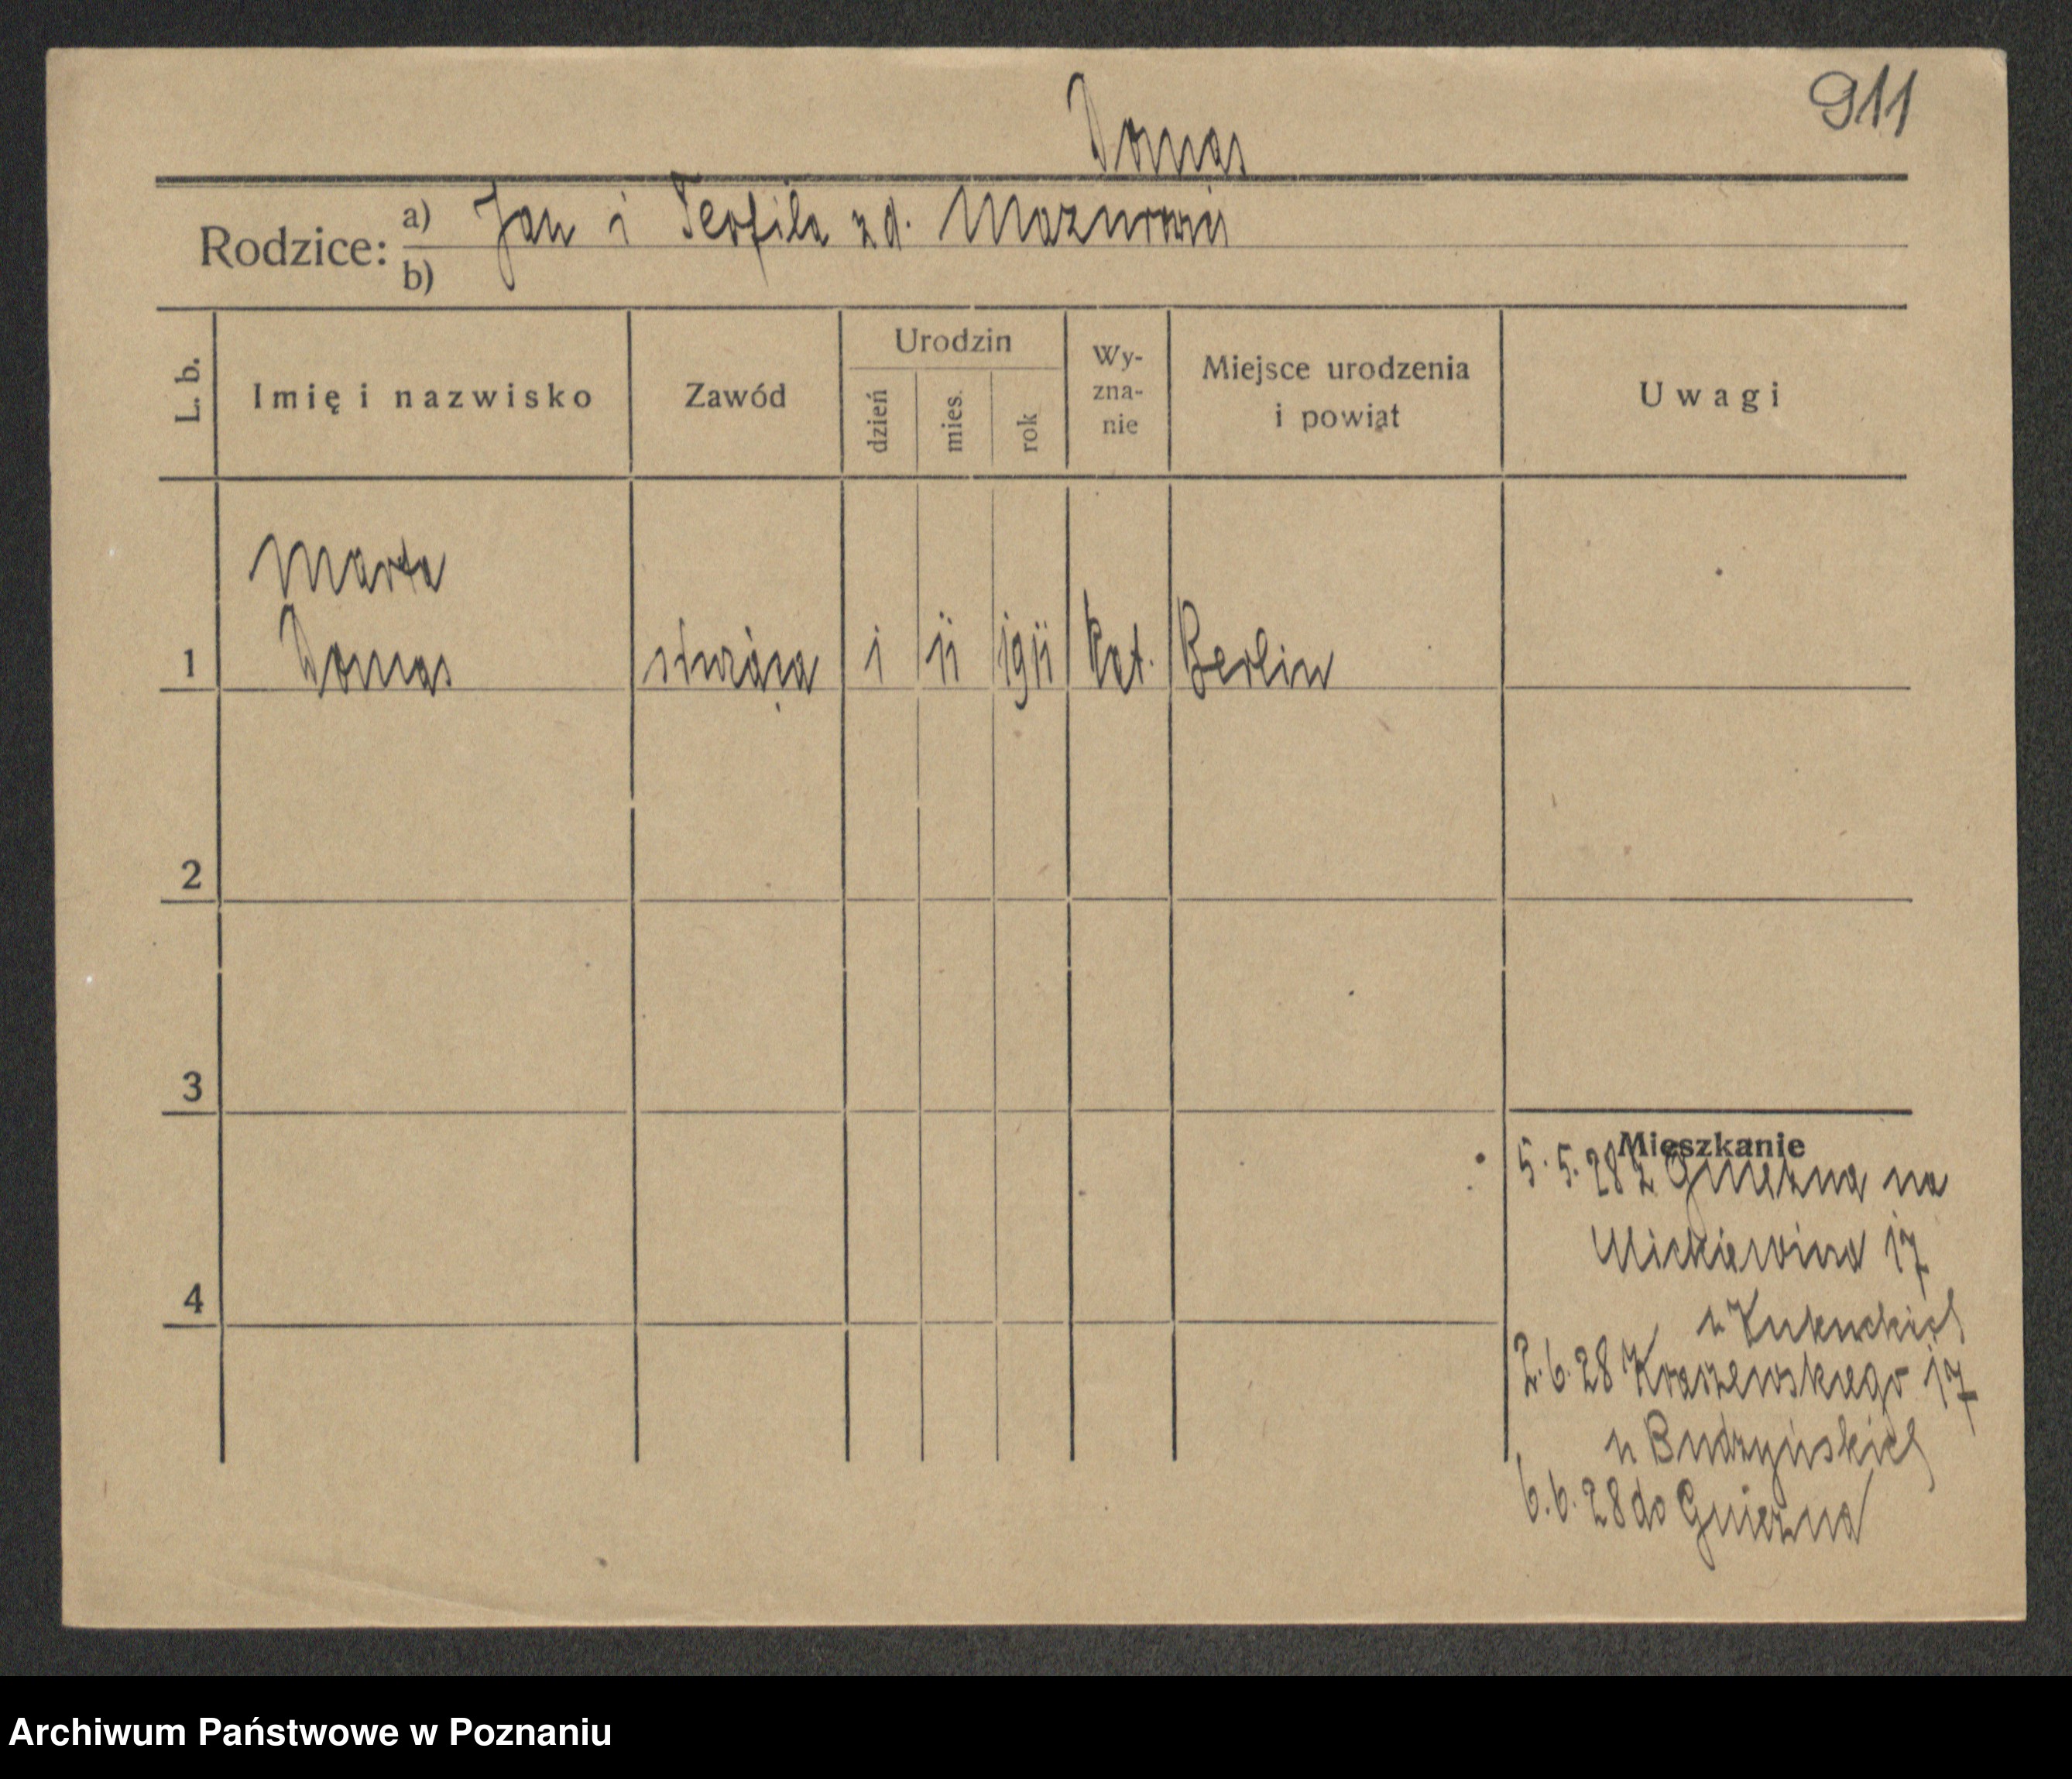 911
Domas
Rodzice: a) Jan i Teofila zd.
b)
L. b.
Imię i nazwisko
Zawód
Urodzin
dzień
mies.
rok
Wy-
zna-
nie
Miejsce urodzenia
i powiat
Uwagi
Marta
1 Domas służąca 1 11 1911 kat. Berlin
2
3
4
Mieszkanie
5.5.28 z Gniezna na
Mickiewicza 17
u
2.6.28 Kraszewskiego 17
u Budzyńskich
6.6.28 do Gniezna
Archiwum Państwowe w Poznaniu